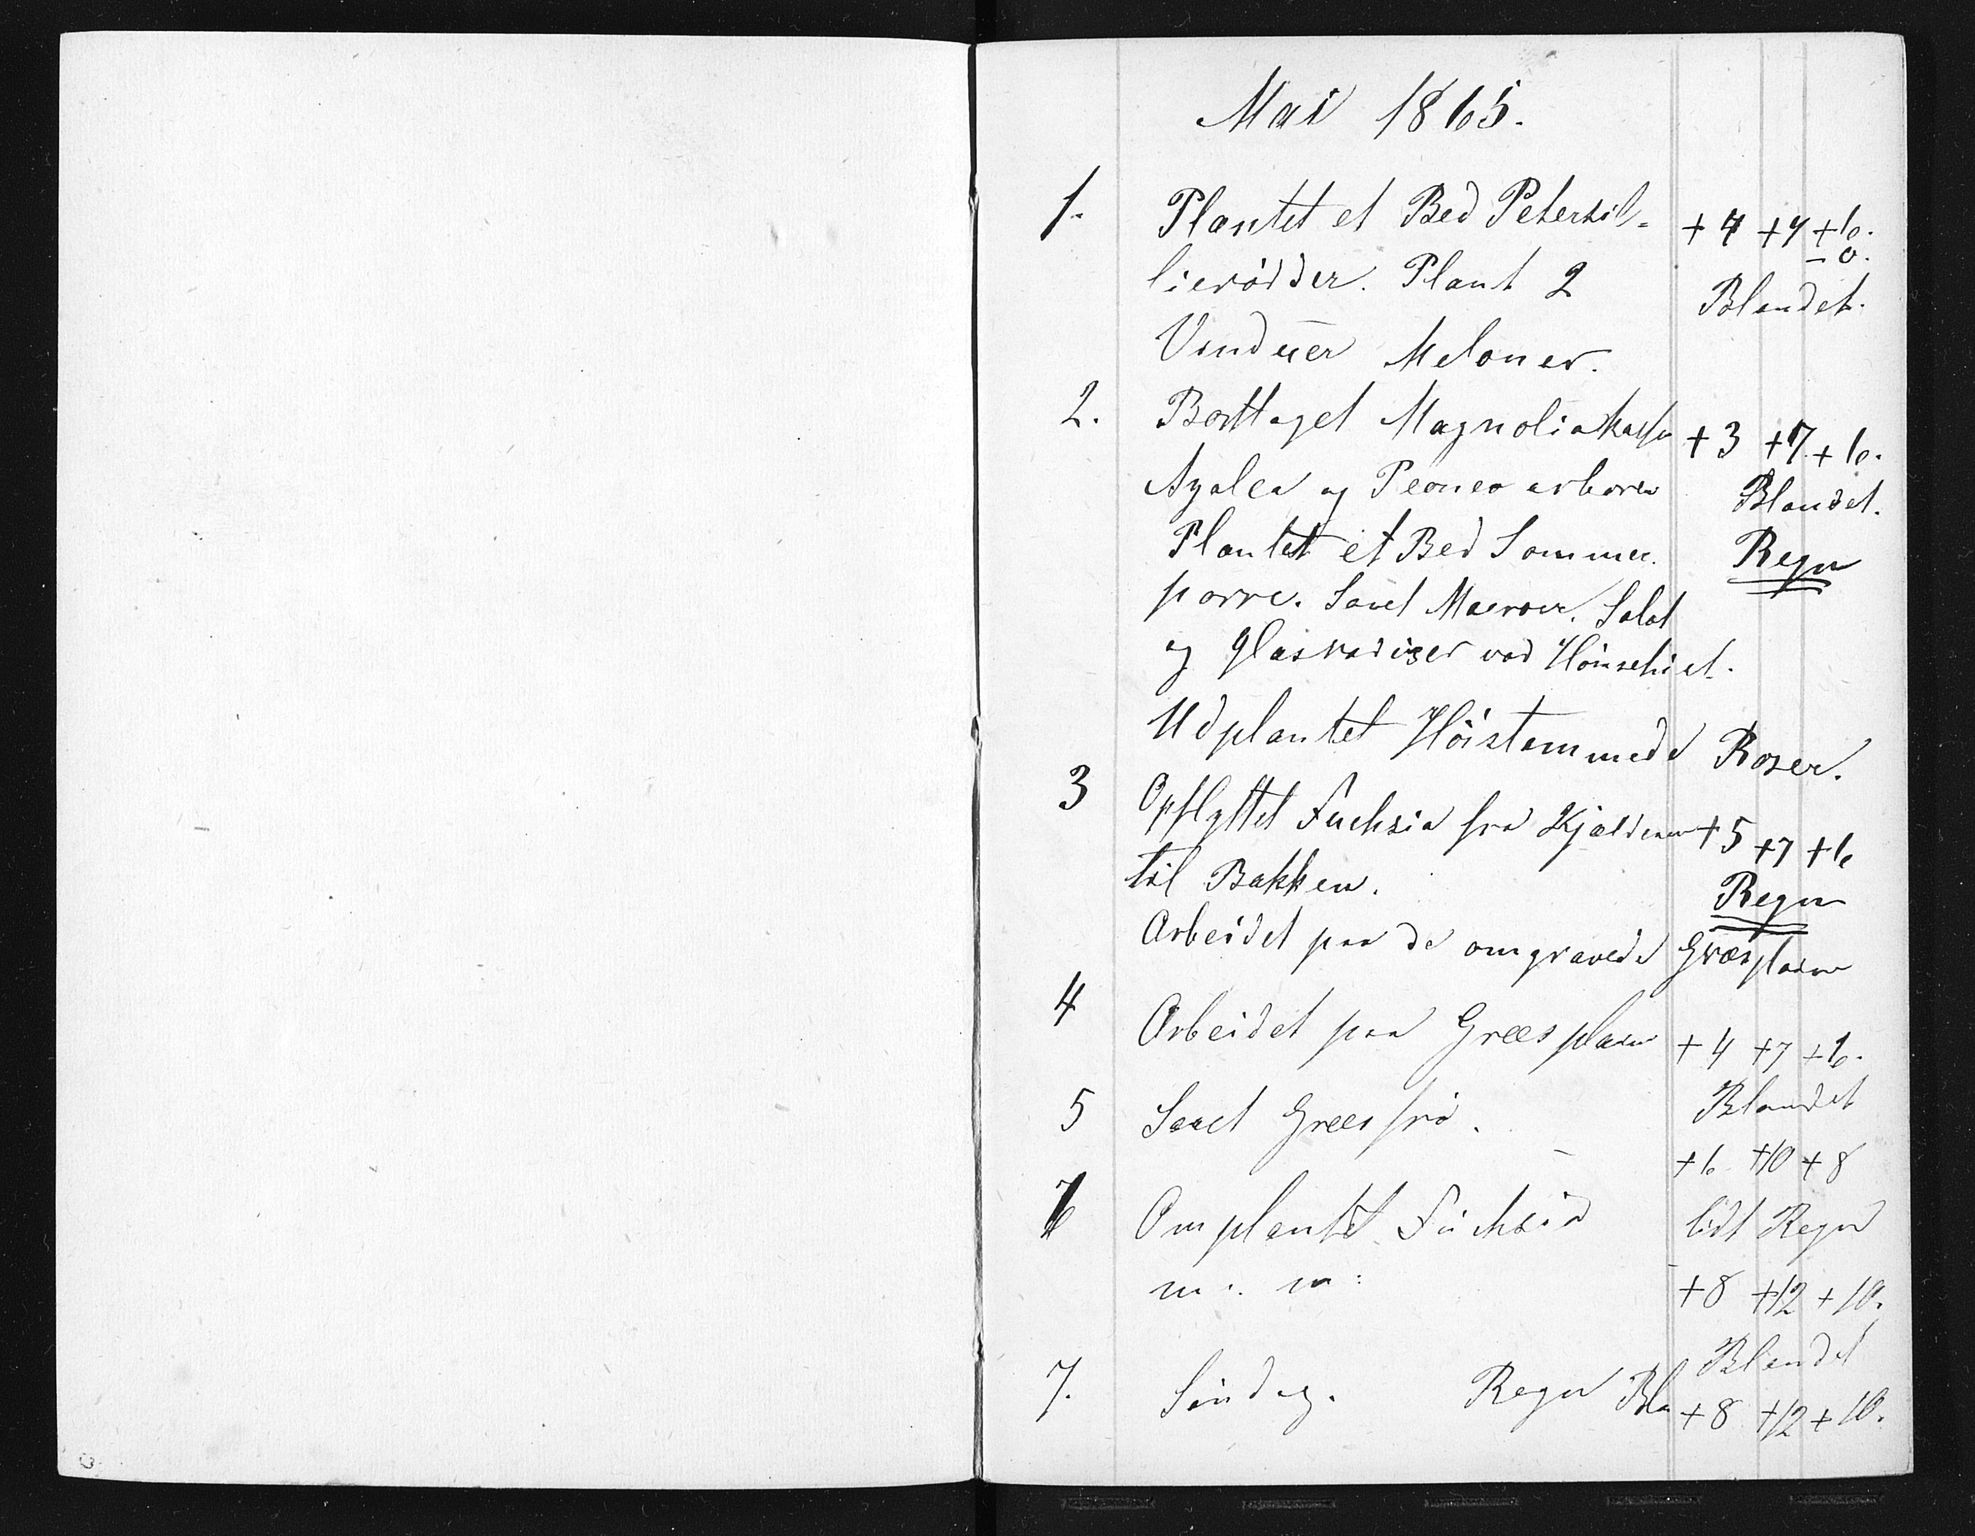 Mai 1865.
1. Plantet et Bed Petersil- +4 +7 +6.
-0.
lierödder. Plant 2 Blandet.
Vinduer Meloner.
2. Borttaget Magnoliakasser +3 +7 +6.
Azalea og Peoneo arborea Blandet.
Plantet et Bed Sommer. Regn
porre. Saaet Salat
og Glasradiser ved Hönsehuset.
Udplantet Höistammede Roser.
3 Opflyttet Fuchsia fra Kjælderen +5 +7 +6
til Bakken. Regn
Arbeidet paa de omgravede Græsplæne
4 Arbeidet paa Græsplæne +4 +7 +6.
5 Saaet Græsfrö. Blandet
+6 +10 +8
6 Omplantet Fuchsia lidt Regn
m. m: +8 +12 +10.
Blandet
7. Söndag. Regn Bla +8 +12 +10.